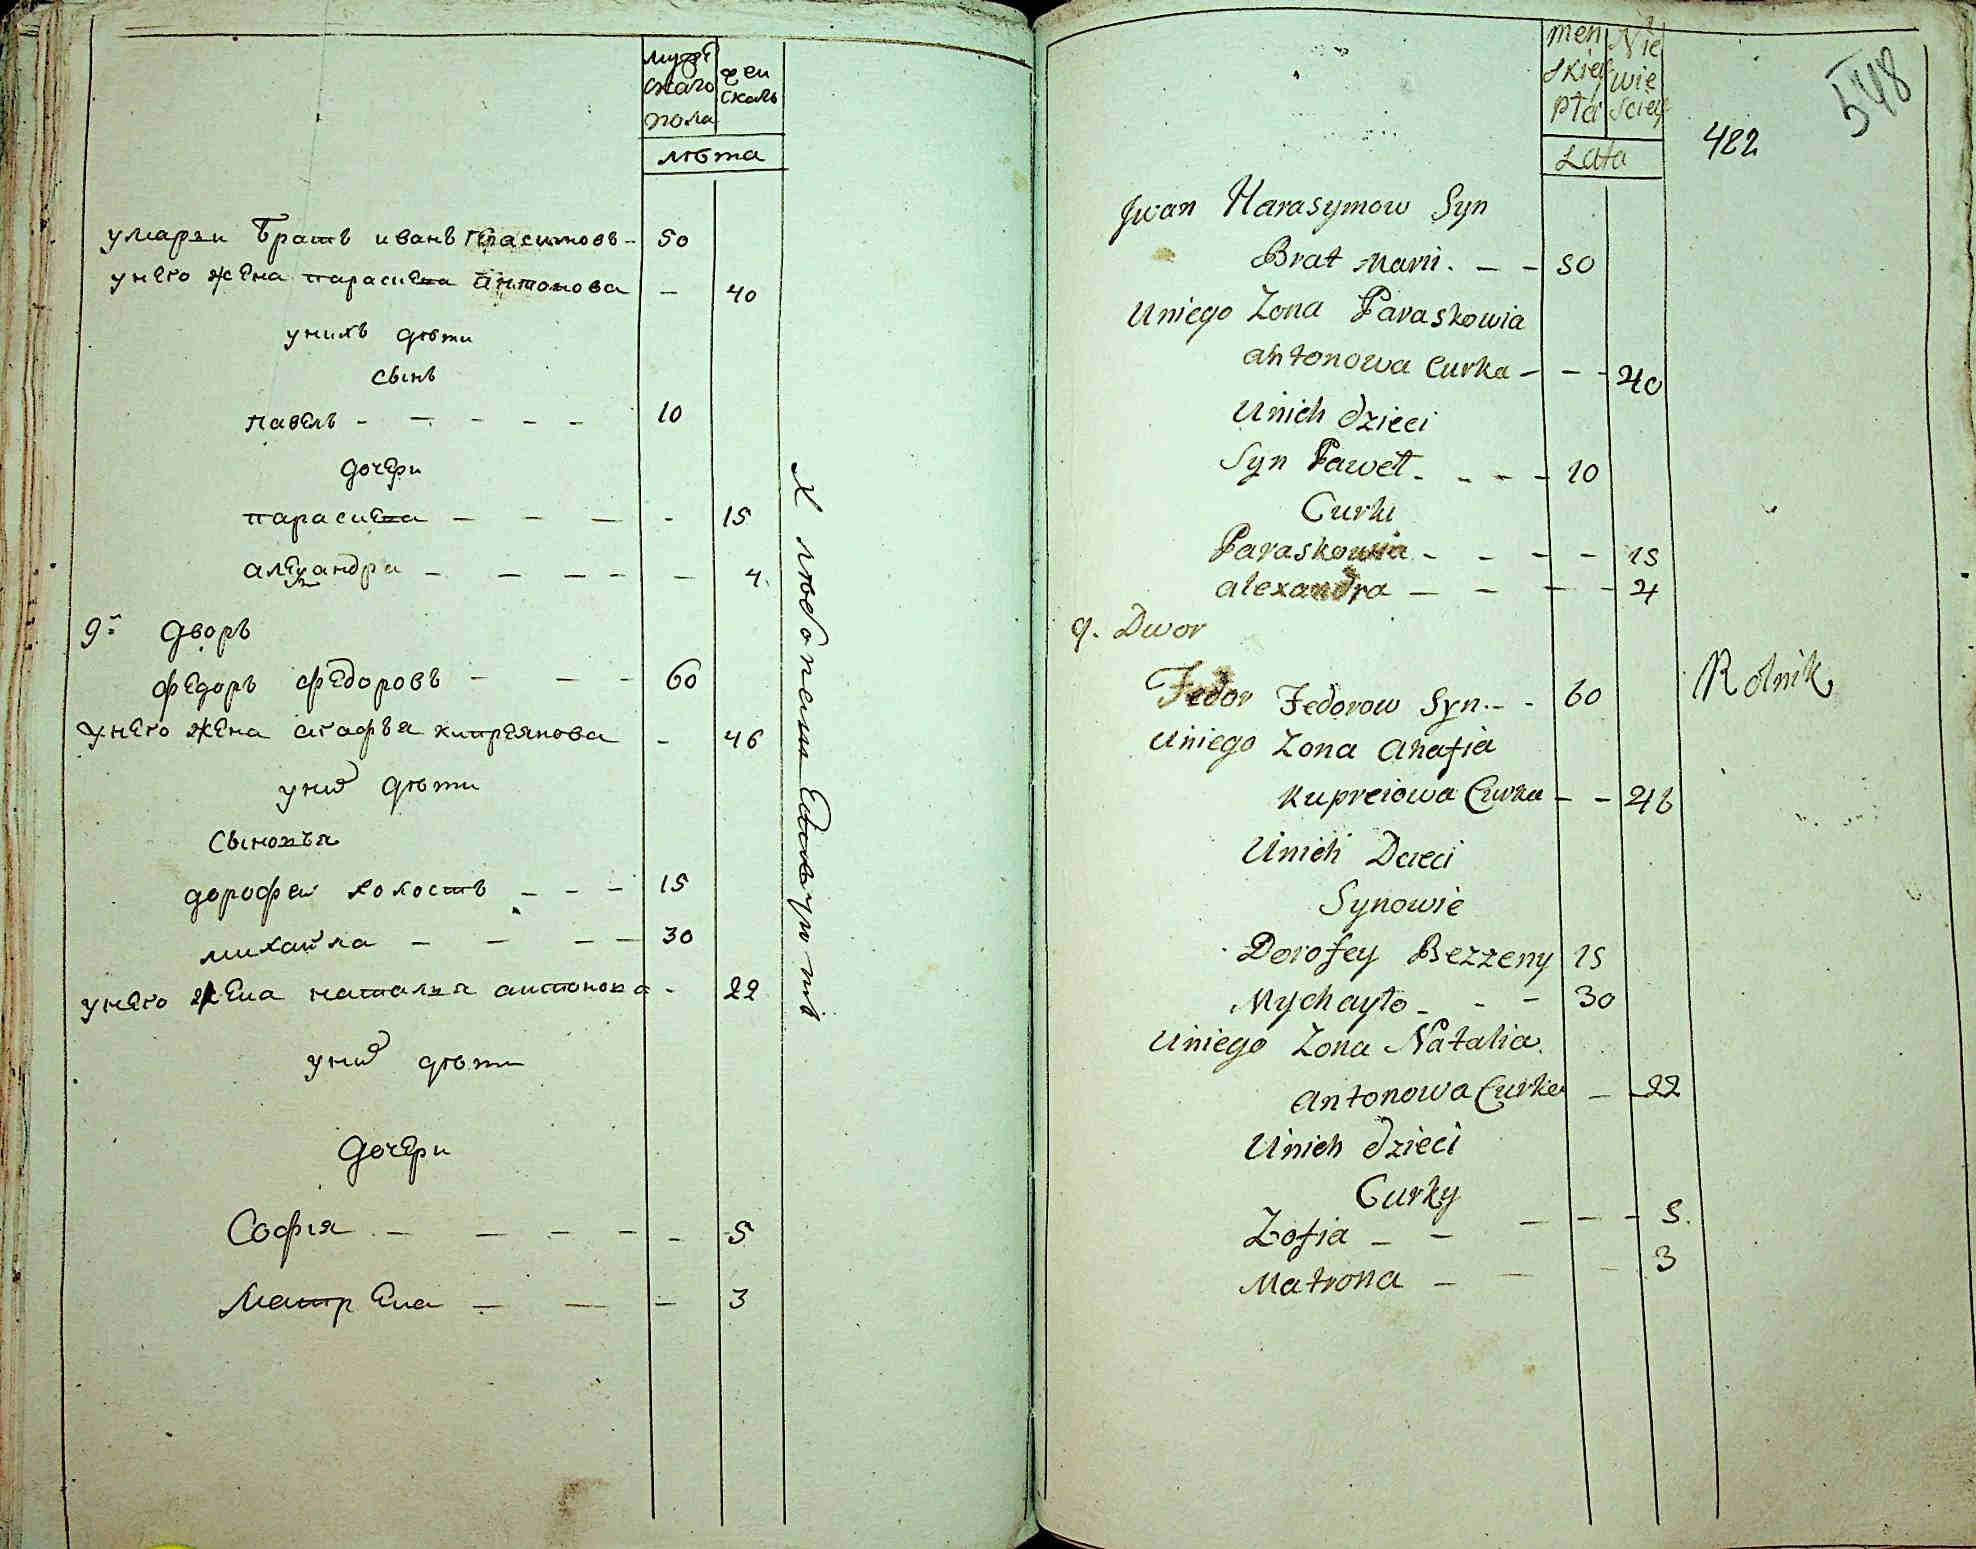 мужескаго пола
женскаго
лѣта
у марзи братъ иванъ герасимовъ - 50
у него жена параскева антонова - 40
у нихъ дѣти
сынъ
павелъ - - - - - 10
дочери
параскева - - - - 15
александра - - - - - 4
9й дворъ
федоръ федоровъ - - - 60
у него жена агафья киприянова - 46
у них дѣти
сыновья
дорофеи холостъ - - - 15
михайла - - - - 30
у него жена наталья антонова - 22
у них дѣти
дочери
Софія - - - - - 5
Матрена - - - 3
Х лѣбопашествуютъ
Męskiej Płci
Niewieściey
Lata
422
548
Jwan Harasymow Syn
Brat Marii. - - 50
Uniego Zona Paraskowia
antonowa Curka - - - 40
Unich dzieci
Syn Paweł - - - - 10
Curki
Paraskowia - - - - 15
alexandra - - - - 4
9. Dwor
Fedor Fedorow Syn. - - 60
Rolnik
Uniego Zona Ahafia
Kupreiowa Curka - - 46
Unich Dzieci
Synowie
Dorofey Bezzeny 15
Mychayło - - - 30
Uniego Zona Natalia
antonowa Curka - - 22
Unich dzieci
Curky
Zofia - - - - - 5.
Matrona - - - 3